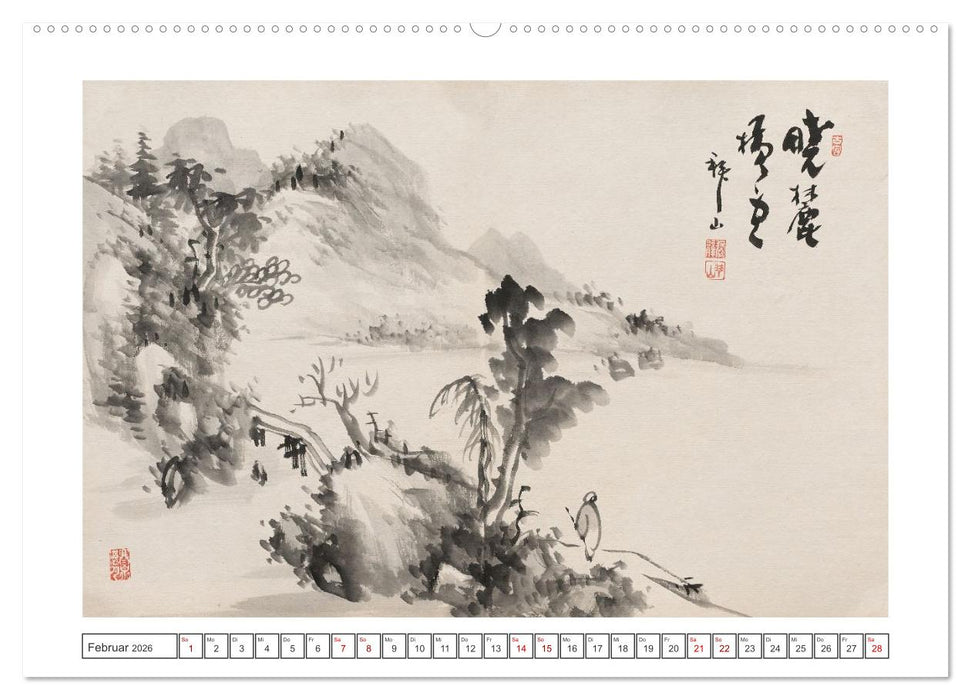 曉麓
橋
山
Februar 2026
So Mo Di Mi Do Fr Sa So Mo Di Mi Do Fr Sa So Mo Di Mi Do Fr Sa So Mo Di Mi Do Fr Sa
1 2 3 4 5 6 7 8 9 10 11 12 13 14 15 16 17 18 19 20 21 22 23 24 25 26 27 28